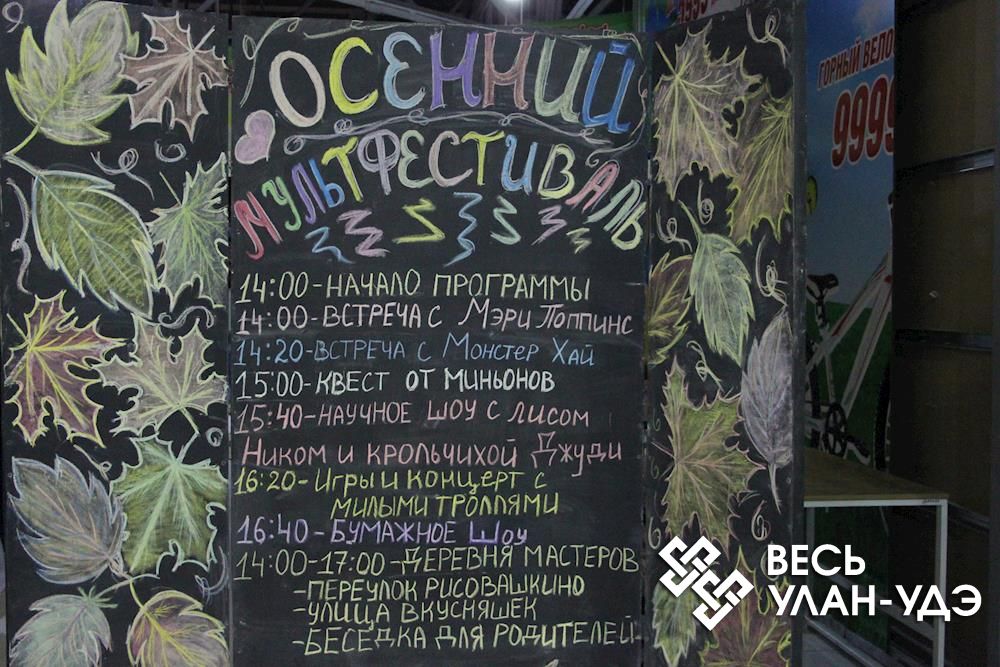 ОСЕННИЙ
МУЛЬТФЕСТИВАЛЬ
14:00-НАЧАЛО ПРОГРАММЫ
14:00-ВСТРЕЧА С МЭРИ ПОППИНС
14:20-ВСТРЕЧА С МОНСТЕР ХАЙ
15:00-КВЕСТ ОТ МИНЬОНОВ
15:40-НАУЧНОЕ ШОУ С ЛИСОМ
НИКОМ И КРОЛЬЧИХОЙ ДЖУДИ
16:20-ИГРЫ И КОНЦЕРТ С
МИЛЫМИ ТРОЛЛЯМИ
16:40-БУМАЖНОЕ ШОУ
14:00-17:00-ДЕРЕВНЯ МАСТЕРОВ
-ПЕРЕУЛОК РИСОВАШКИНО
-УЛИЦА ВКУСНЯШЕК
-БЕСЕДКА ДЛЯ РОДИТЕЛЕЙ-
ГОРНЫЙ ВЕЛО
9999
ВЕСЬ
УЛАН-УДЭ